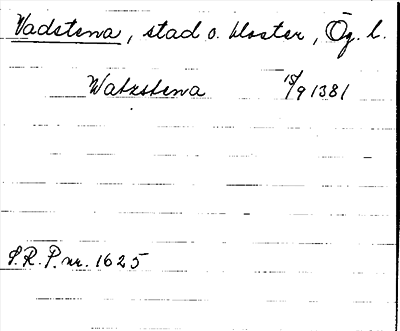 Vadstena, stad o. kloster, Ög. l.
Watzstena 15/9 1381
S.R.P. nr. 1625